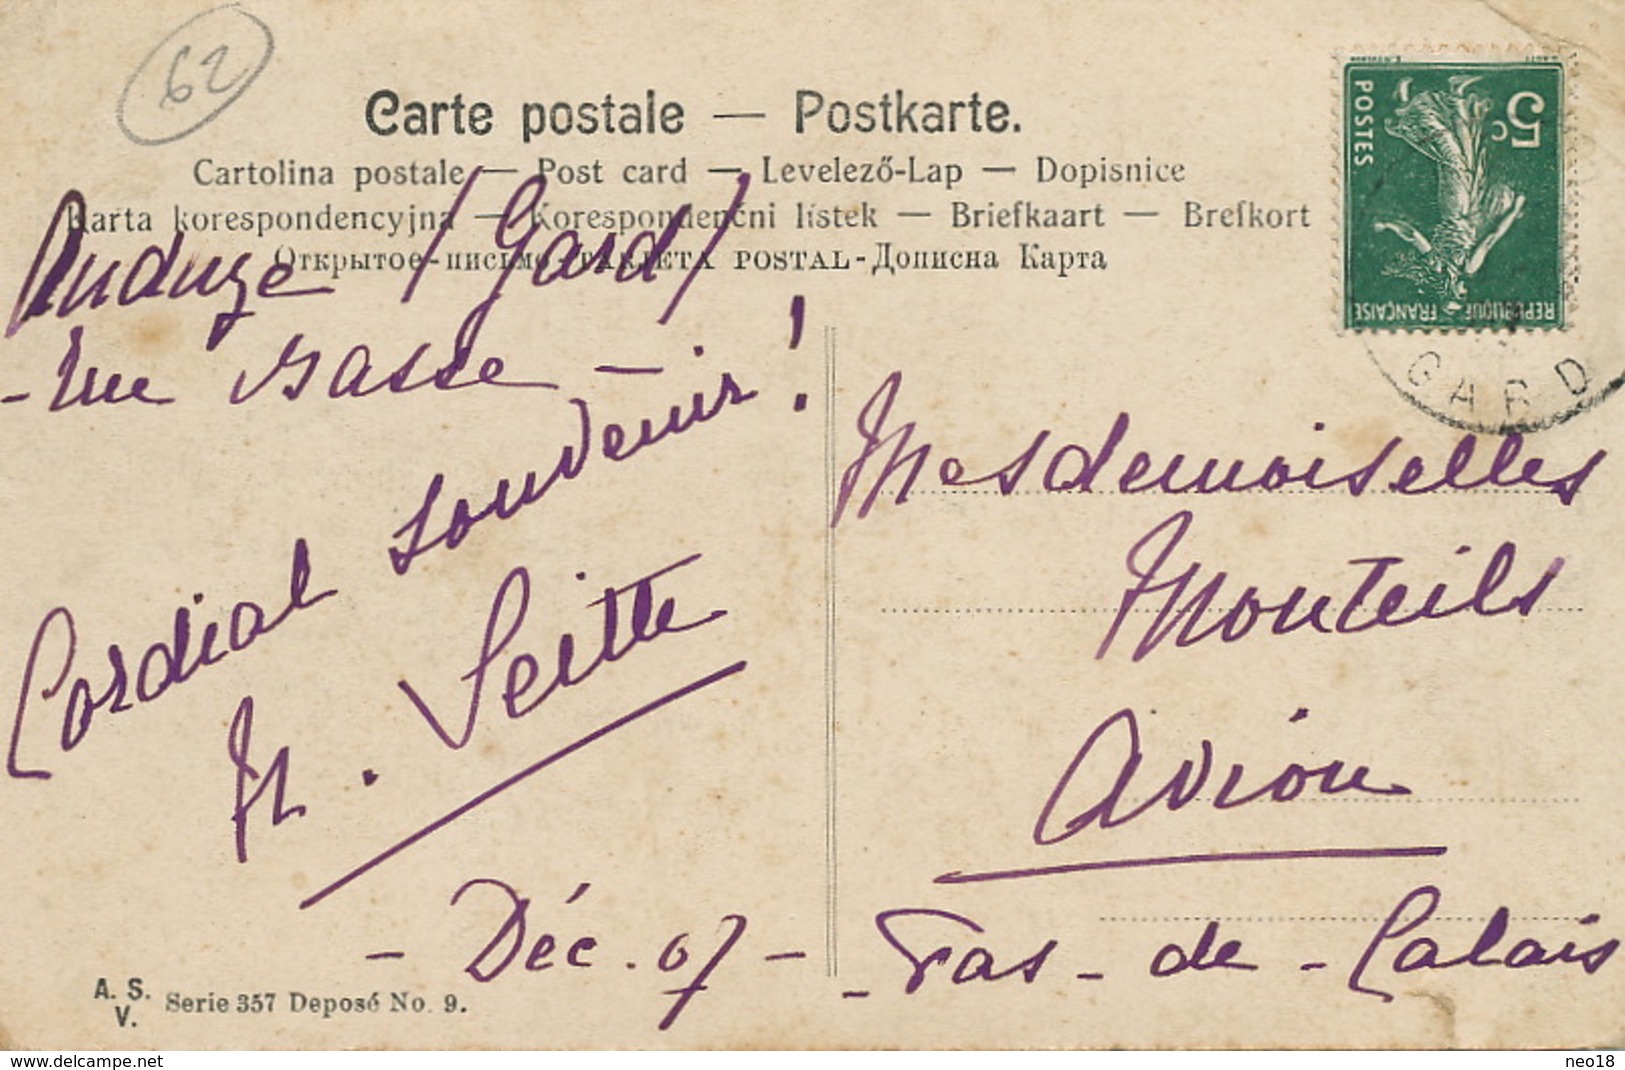 62
Carte postale — Postkarte.
Cartolina postale — Post card — Levelező-Lap — Dopisnice
Karta korespondencyjna — Korespondenční lístek — Briefkaart — Brefkort
Открытое-письмо-TARJETA POSTAL-Дописна Карта
Anduze (Gard)
- rue Basse -
Cordial souvenir !
M. Seitte
- Déc. 07 -
A. S.
V.
Serie 357 Deposé No. 9.
5c
POSTES
REPUBLIQUE FRANÇAISE
GARD
Mesdemoiselles
Monteils
Avion
- Pas-de-Calais
www.delcampe.net
neo18